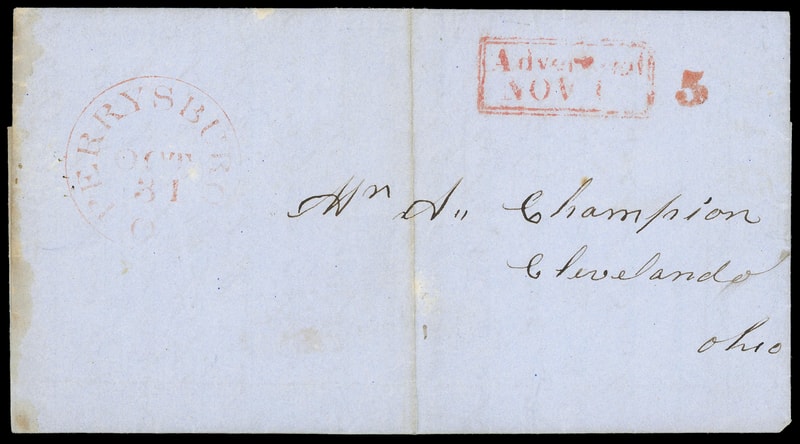 PERRYSBURG
OCT
31
O
Advertised
NOV 1
5
Mr A,, Champion
Cleveland
Ohio